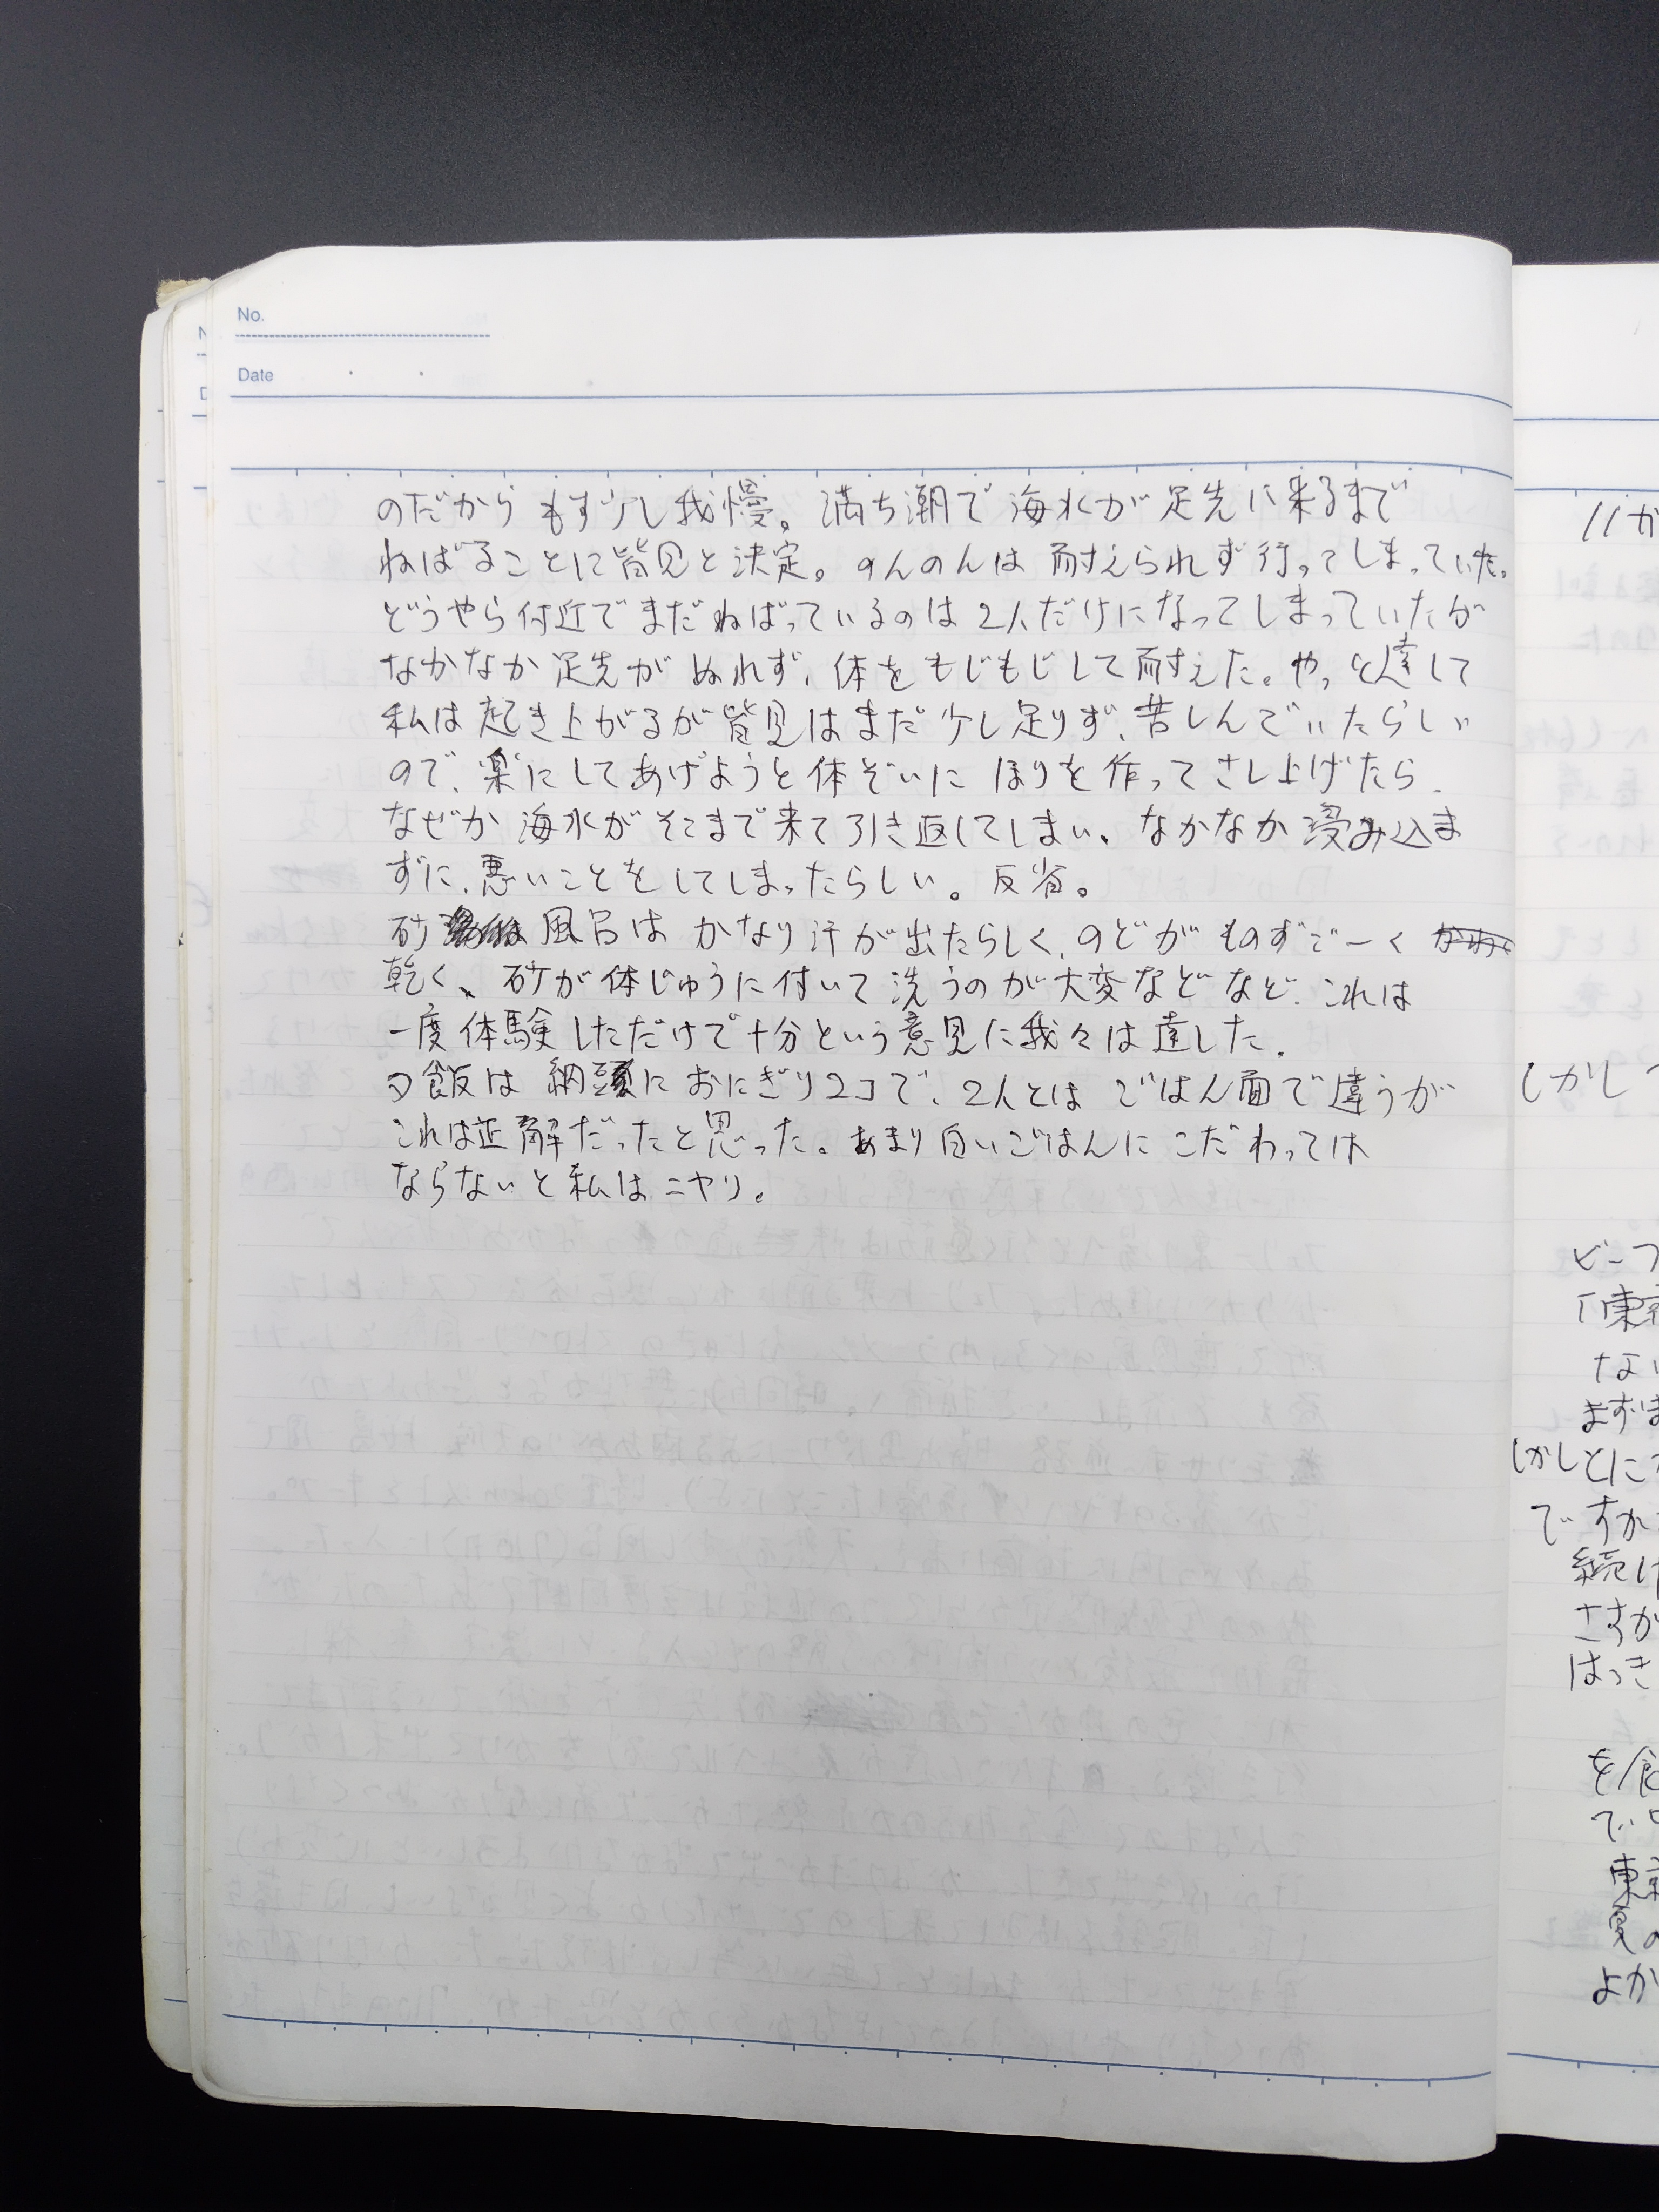 No.
Date
のだから もう少し我慢。満ち潮で海水が足先に来るまで
ねばることに皆見と決定。のんのんは耐えられず行ってしまっていた。
どうやら付近でまだねばっているのは2人だけになってしまっていたが
なかなか足先がぬれず、体をもじもじして耐えた。やっと達して
私は起き上がるが皆見はまだ少し足りず、苦しんでいたらしい
ので、楽にしてあげようと体ぞいに ほりを作ってさし上げたら、
なぜか海水がそこまで来て引き返してしまい、なかなか浸み込ま
ずに、悪いことをしてしまったらしい。反省。
砂風呂は かなり汗が出たらしく、のどが ものすごーく
乾く、砂が体じゅうに付いて洗うのが大変などなど、これは
一度体験しただけで十分という意見に我々は達した。
夕飯は 納頭におにぎり2コで、2人とは ごはん面で違うが
これは正解だったと思った。あまり白いごはんに こだわっては
ならないと私はニヤリ。
11か
しかし
ビーフ
「東
ない
まずま
しかしとに
ですか
続け
さすが
はっき
を食
で
東京
よか